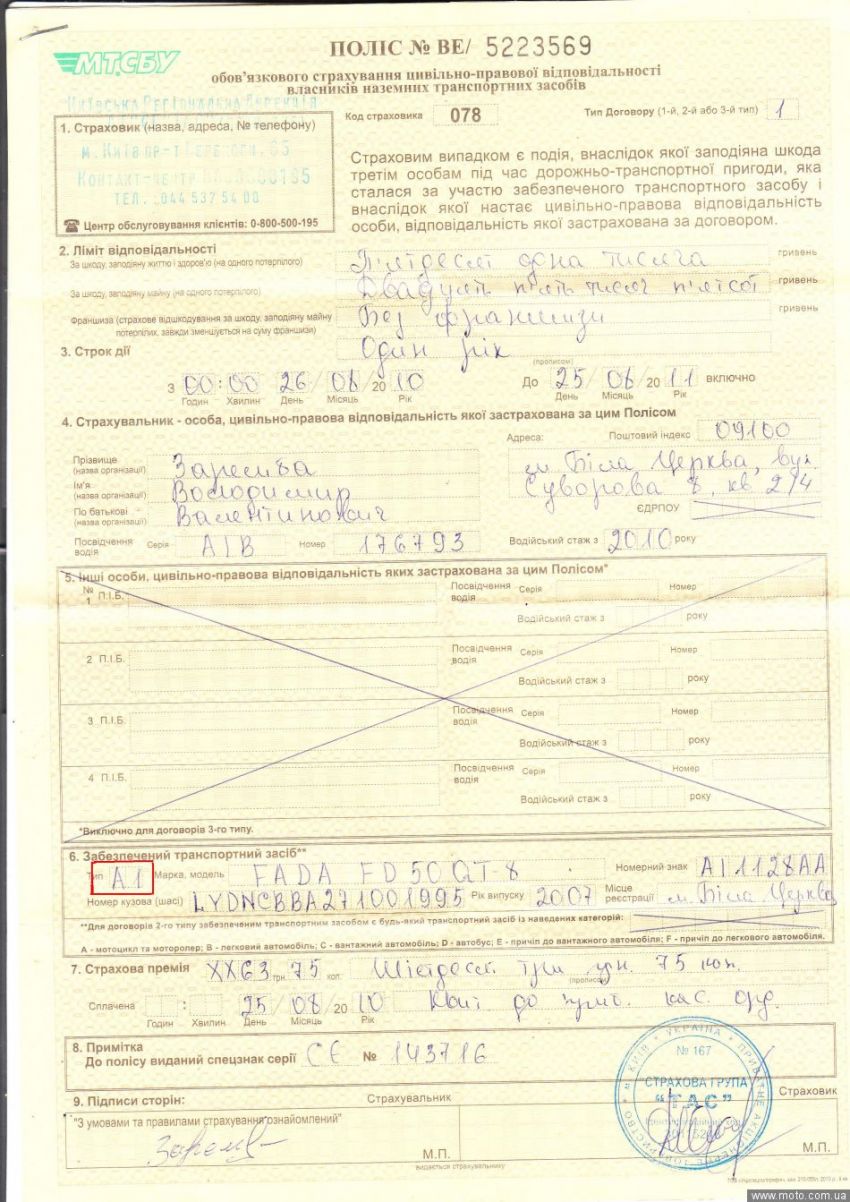 МТСБУ
ПОЛІС № ВЕ/ 5223569
обов'язкового страхування цивільно-правової відповідальності
власників наземних транспортних засобів
Київська Регіональна Дирекція
Код страховика 078 Тип Договору (1-й, 2-й або 3-й тип) 1
1. Страховик (назва, адреса, № телефону)
м. Київ пр-т Перемоги, 65
Контакт-центр
ТЕЛ. 044 537 54 00
☎ Центр обслуговування клієнтів: 0-800-500-195
Страховим випадком є подія, внаслідок якої заподіяна шкода
третім особам під час дорожньо-транспортної пригоди, яка
сталася за участю забезпеченого транспортного засобу і
внаслідок якої настає цивільно-правова відповідальність
особи, відповідальність якої застрахована за договором.
2. Ліміт відповідальності
За шкоду, заподіяну життю і здоров'ю (на одного потерпілого) П'ятдесят одна тисяча гривень
За шкоду, заподіяну майну (на одного потерпілого) Двадцять п'ять тисяч п'ятсот гривень
Франшиза (страхове відшкодування за шкоду, заподіяну майну Без франшизи гривень
потерпілих, завжди зменшується на суму франшизи)
3. Строк дії Один рік
(прописом)
З 00:00 26/08/2010 До 25/08/2011 включно
Годин Хвилин День Місяць Рік День Місяць Рік
4. Страхувальник - особа, цивільно-правова відповідальність якої застрахована за цим Полісом
Адреса: Поштовий індекс 09100
Прізвище
(назва організації) Заремба м. Біла Церква, вул.
Ім'я
(назва організації) Володимир Суворова 8, кв 214
По батькові
(назва організації) Валентинович ЄДРПОУ
Посвідчення
водія Серія АІВ Номер 176793 Водійський стаж з 2010 року
5. Інші особи, цивільно-правова відповідальність яких застрахована за цим Полісом*
№
1 П.І.Б. Посвідчення водія Серія Номер
Водійський стаж з року
2 П.І.Б. Посвідчення водія Серія Номер
Водійський стаж з року
3 П.І.Б. Посвідчення водія Серія Номер
Водійський стаж з року
4 П.І.Б. Посвідчення водія Серія Номер
Водійський стаж з року
*Виключно для договорів 3-го типу.
6. Забезпечений транспортний засіб**
Тип А1 Марка, модель FADA FD 50 QT-8 Номерний знак АІ1128АА
Номер кузова (шасі) LYDNCBBA271001995 Рік випуску 2007 Місце реєстрації м. Біла Церква
**Для договорів 2-го типу забезпеченим транспортним засобом є будь-який транспортний засіб із наведених категорій:
А - мотоцикл та моторолер; В - легковий автомобіль; С - вантажний автомобіль; D - автобус; Е - причіп до вантажного автомобіля; F - причіп до легкового автомобіля.
7. Страхова премія ХХ63 грн. 75 коп. Шістдесят три грн. 75 коп.
(прописом)
Сплачена : 25/08/2010 Квит. до кас. орд.
Годин Хвилин День Місяць Рік
8. Примітка
До полісу виданий спецзнак серії СЕ № 143716
9. Підписи сторін: Страхувальник Страховик
"З умовами та правилами страхування ознайомлений"
М.П. М.П.
видається страхувальнику
м. КИЇВ * УКРАЇНА * ПРИВАТНЕ АКЦІОНЕРНЕ ТОВАРИСТВО
№ 167
СТРАХОВА ГРУПА
"ТАС"
www.moto.com.ua